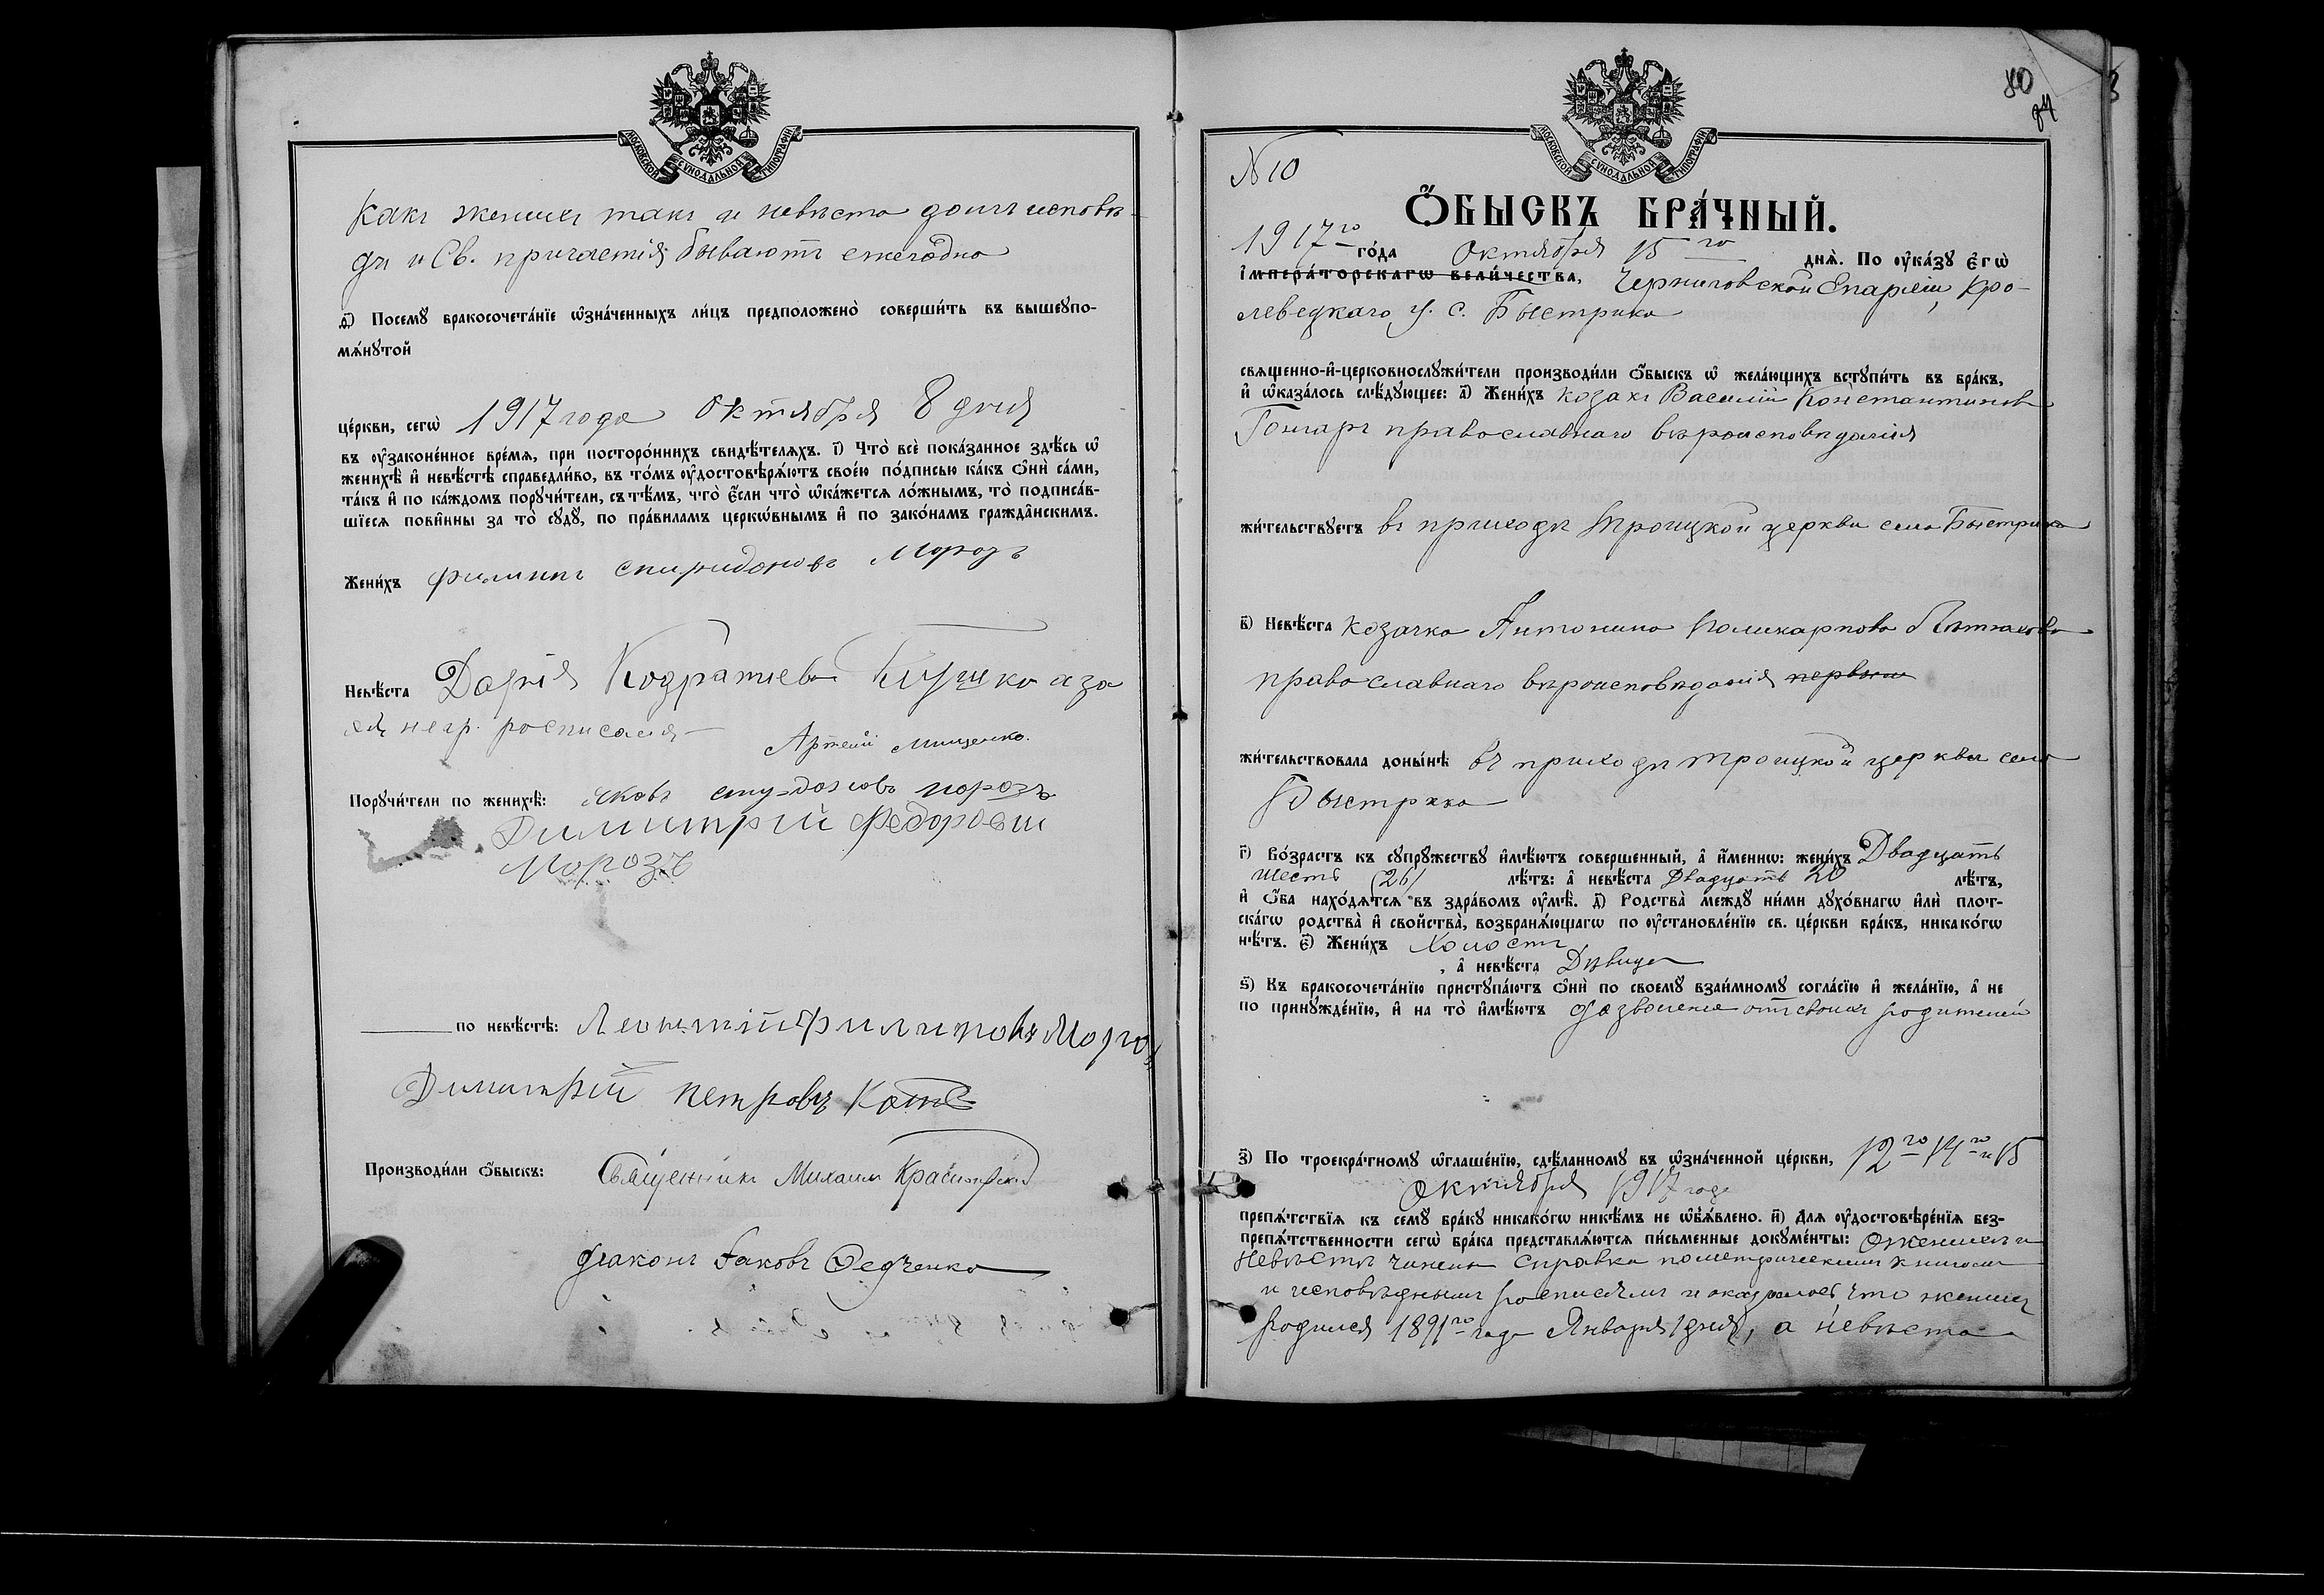 МОСКОВСКОЙ СѴНОДАЛЬНОЙ ТИПОГРАФІИ
Какъ женихъ такъ и невѣста долгъ исповѣ-
ди и Св. причастія бывають ежегодно
ѳ҃) Посемꙋ̀ бракосочета́нїе ѡ҆зна́ченныхъ ли́цъ предположено̀ соверши́ть въ вышеꙋпо-
мѧ́нꙋтой
це́ркви, сегѡ̀ 1917 года Октября 8 дня
въ ᲂу҆зако́не́нное вре́мѧ, при посторо́ннихъ свидѣ́телѧхъ. і҃) Что̀ всѐ пока́занное здѣ́сь ѡ҆
женихѣ̀ и҆ невѣ́стѣ справедли́во, въ то́мъ ᲂу҆достовѣрѧ́ютъ свое́ю по́дписью ка́къ ѻ҆нѝ са́ми,
та́къ и҆ по ка́ждомъ порꙋчи́тели, съ тѣ́мъ, что̀ є҆́сли что̀ ѡ҆ка́жетсѧ ло́жнымъ, то̀ подписа́в-
шїесѧ пови́нны за то̀ сꙋдꙋ̀, по пра́виламъ церкѡ́внымъ и҆ по зако́намъ гражда́нскимъ.
Жени́хъ Филиппъ Спиридоновъ Морозъ
Невѣ́ста Дарія Кодратиева а за
ея негр. росписался
Артемій Мищенко.
Порꙋчи́тели по женихѣ̀: Яковъ морозъ
Димитрій Федоровъ
Морозъ
по невѣ́стѣ: Леонтій Филиповъ
Димитрій Петровъ Котъ
Производи́ли ѻ҆́быскъ: Священникъ Михаилъ
Діаконъ Іаковъ Федченко
80
МОСКОВСКОЙ СѴНОДАЛЬНОЙ ТИПОГРАФІИ
N 10
Ѻ҆́БЫСКЪ БРА́ЧНЫЙ.
1917го го́да Октября 15го днѧ̀. По ᲂу҆ка́зꙋ є҆гѡ̀
і҆мпера́торскагѡ вели́чества, Черниговской Епархіи, Кро-
левецкаго у. с. Быстрика
свѧщенно-и҆-церковнослꙋжи́тели производи́ли ѻ҆́быскъ ѡ҆ жела́ющихъ встꙋпи́ть въ бра́къ,
и҆ ѡ҆каза́лось слѣ́дꙋющее: а҃) Жени́хъ козакъ Василій Константиновъ
Гончаръ православнаго вѣроисповѣданія
жи́тельствꙋетъ въ приходѣ Троицкой церкви села Быстрика
в҃) Невѣ́ста козачка Антонина Поликарпова
православнаго вѣроисповѣданія
жи́тельствовала доны́нѣ въ приходѣ Троицкой церкви села
Быстрика
г҃) Во́зрастъ къ сꙋпрꙋ́жествꙋ и҆мѣ́ютъ соверше́нный, а҆ и҆́меннѡ: жени́хъ Двадцать
шесть (26) лѣ́тъ: а҆ невѣ́ста Двадцать 20 лѣ́тъ,
и҆ ѻ҆́ба нахо́дѧтсѧ въ здра́вомъ ᲂу҆мѣ̀. д҃) Родства̀ междꙋ̀ ни́ми дꙋхо́внагѡ и҆лѝ плот-
ска́гѡ родства̀ и҆ свойства̀, возбранѧ́ющагѡ по ᲂу҆становле́нїю св. це́ркви бра́къ, никако́гѡ
нѣ́тъ. є҃) Жени́хъ Холостъ
, а҆ невѣ́ста Дѣвица
ѕ҃) Къ бракосочета́нїю пристꙋпа́ютъ ѻ҆нѝ по своемꙋ̀ взаи́мномꙋ согла́сїю и҆ жела́нїю, а҆ не
по принꙋжде́нїю, и҆ на то̀ и҆мѣ́ютъ дозволение отъ своихъ родителей
з҃) По троекра́тномꙋ ѡ҆глаше́нїю, сдѣ́ланномꙋ въ ѡ҆зна́ченной це́ркви, 12го 14го и 15
Октября 1917 года
препѧ́тствїѧ къ семꙋ̀ бра́кꙋ никако́гѡ никѣ́мъ не ѡ҆б̾ѧ́влено. и҃) Длѧ ᲂу҆достовѣре́нїѧ без-
препѧ́тственности сегѡ̀ бра́ка представлѧ́ютсѧ пи́сьменные докꙋме́нты: О женихѣ и
невѣстѣ чинена справка по метрическимъ книгамъ
и исповѣднымъ росписямъ и оказалось что женихъ
родился 1891го года Января 1 дня, а невѣста